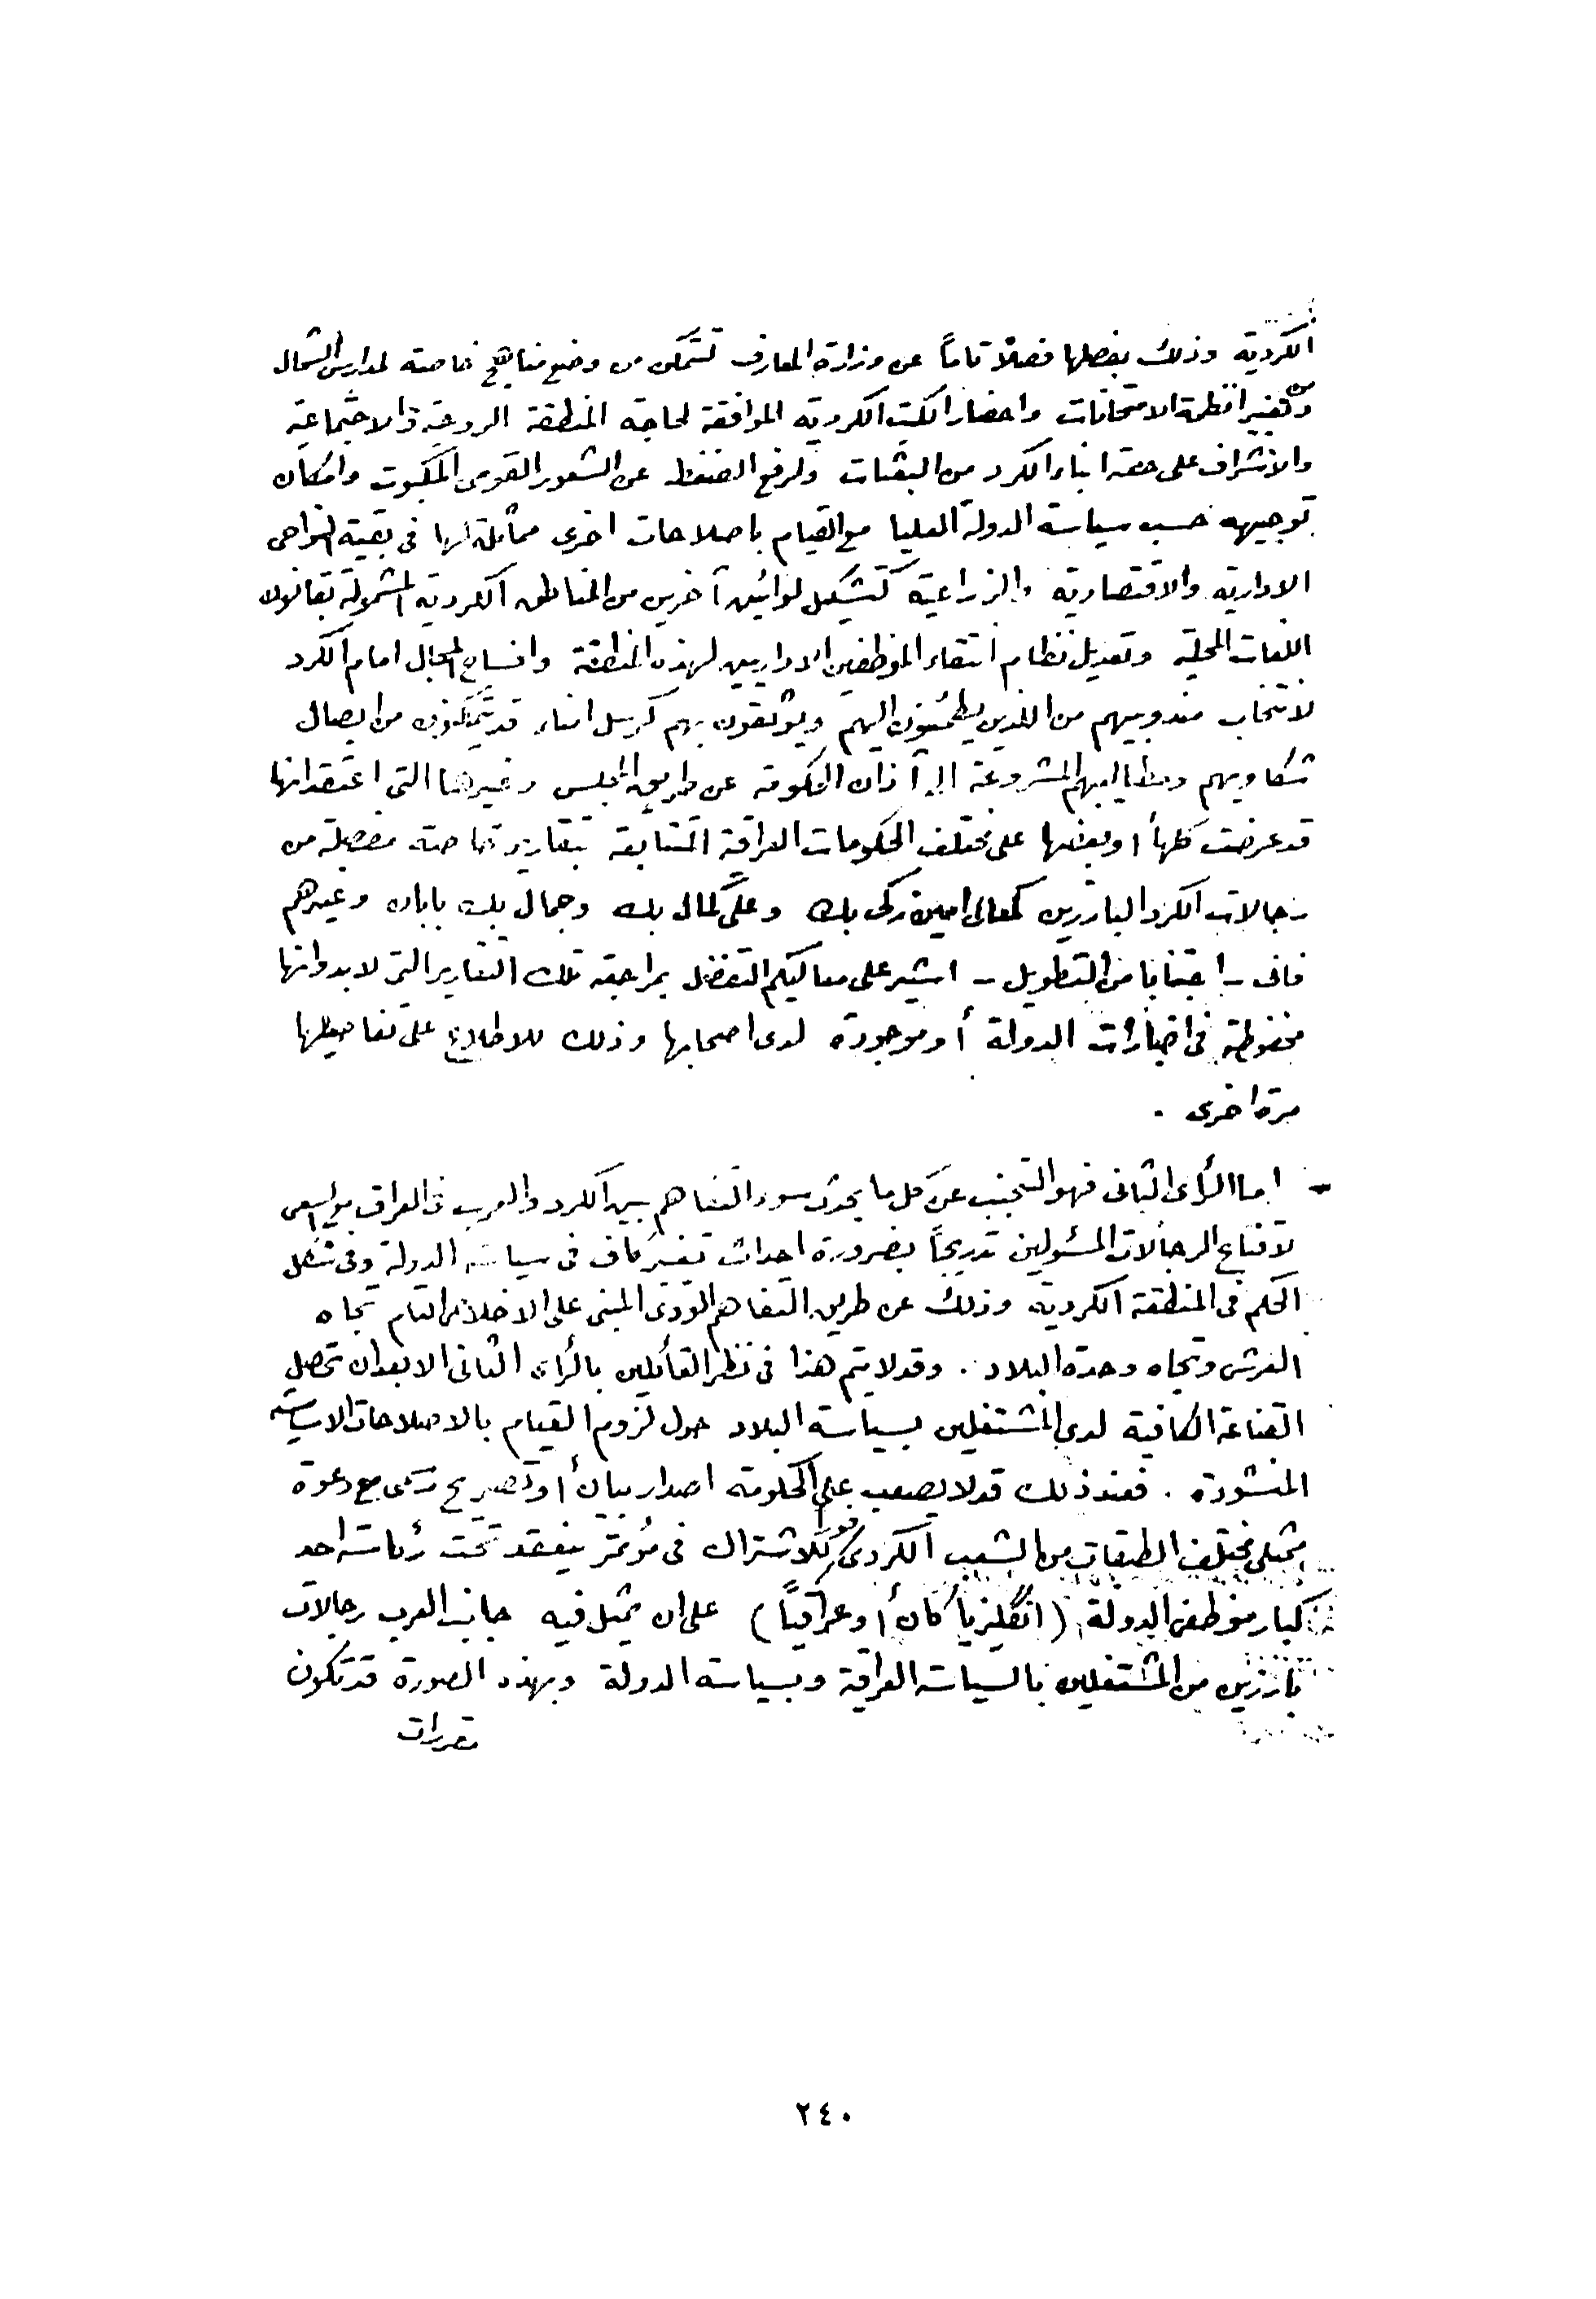 الكردية وذلك بفصلها فصلاً تاماً عن وزارة المعارف لتتمكن من وضع مناهج خاصة لمدارس الشمال
ومن تغيير انظمة الامتحانات واحضار الكتب الكردية الموافقة لحاجة المنطقة الروحية والاجتماعية
والاشراف على حصة ابناء الكرد من البعثات ولرفع الضغط عن الشعور القومى المكبوت وامكان
توجيهه حسب سياسة الدولة العليا مع القيام باصلاحات اخرى مماثلة لها فى بقية النواحى
الادارية والاقتصادية والزراعية كتشكيل لوائين آخرين من المناطق الكردية المشمولة بقانون
اللغات المحلية وتعديل نظام انتقاء الموظفين الاداريين لهذه المنطقة وافساح المجال امام الكرد
لانتخاب مندوبيهم من اللذين يطمئنون اليهم ويوثقون بهم كرسل امناء قد يتمكنون من ايصال
شكاويهم ومطاليبهم المشروعة الى آذان الحكومة عن طريق المجلس وغيرها التى اعتقد انها
قد عرضت كلها أو بعضها على مختلف الحكومات العراقية المتتابعة بتقارير خاصة مفصلة من
رجالات الكرد البارزين كمعالى امين زكى بك وعلى كمال بك وجمال بك بابان وغيرهم
فانى - اجتنابا من التطويل - اشير على معاليكم التفضل بمراجعة تلك التقارير التى لابد وانها
محفوظة فى اضبارات الدولة أو موجودة لدى اصحابها وذلك للاطلاع على تفاصيلها
مرة اخرى .
- اما الرأى الثانى فهو التجنب عن كل ما يحدث سوء التفاهم بين الكرد والعرب فى العراق مع السعى
لاقناع الرجالات المسئولين تدريجاً بضرورة احداث تغيير كاف فى سياسة الدولة وفى شكل
الحكم فى المنطقة الكردية وذلك عن طريق التفاهم الودى المبنى على الاخلاص التام تجاه
العرش وتجاه وحدة البلاد . وقد لا يتم هذا فى نظر القائلين بالرأى الثانى الا بعد ان تحصل
القناعة الكافية لدى المشتغلين بسياسة البلاد حول لزوم القيام بالاصلاحات الاساسية
المنشودة . فعند ذلك قد لا يصعب على الحكومة اصدار بيان أو تصريح رسمى مع دعوة
ممثلى مختلف الطبقات من الشعب الكردى فوراً للاشتراك فى مؤتمر ينعقد تحت رئاسة احد
كبار موظفى الدولة (انگليزياً كان أو عراقياً) على ان يمثل فيه جانب العرب رجالات
بارزين من المشتغلين بالسياسة العراقية وبسياسة الدولة وبهذه الصورة قد تكون
مقررات
٢٤٠